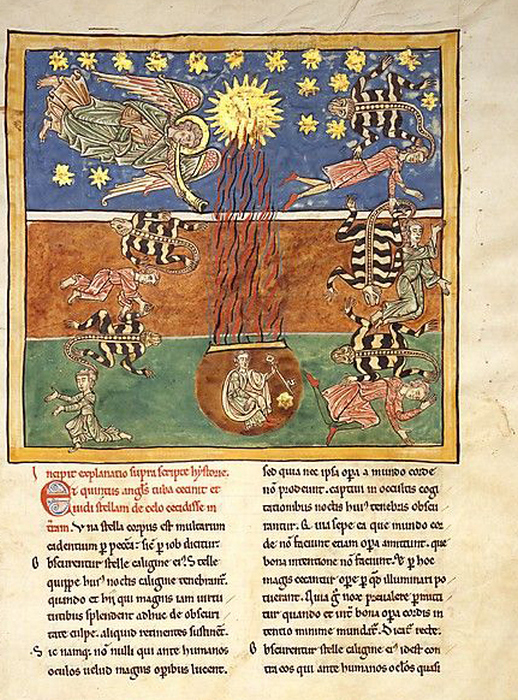 Incipit explanatio supra scripte hystorie.
Et quintus angls tuba cecinit et
uidi stellam de celo cecidisse in
tram. Una stella corpus est multarum
cadentium per pccca. sic p iob dicitur.
Obscurentur stelle caligine ei. Stelle
quippe hui noctis caligine tenebrant.
quando et hij qui magnis iam uirtu
tibus splendent adhuc de obscuri
tate culpe. aliquid retinentes sustinet.
Sic namq. non nulli qui ante humanos
oculos uelud magnis opibus lucent.
sed quia nec ipsa opa a mundo corde
non prodeunt. captiui in occultis cogi
tationibus noctis hui tenebras obscu
rantur. Qui sepe ea que mundo cor
de non faciunt etiam opa amittunt. que
bona intentione non faciunt. p hoc
magis cecantur ope p qd illuminari po
tuerant. Quia g nox preualere pmitti
tur quando et int bona opa cordis in
tentio minime mundatur. Dicat recte.
Obscurentur stelle caligine ei idest con
tra eos qui ante humanos oclos quasi